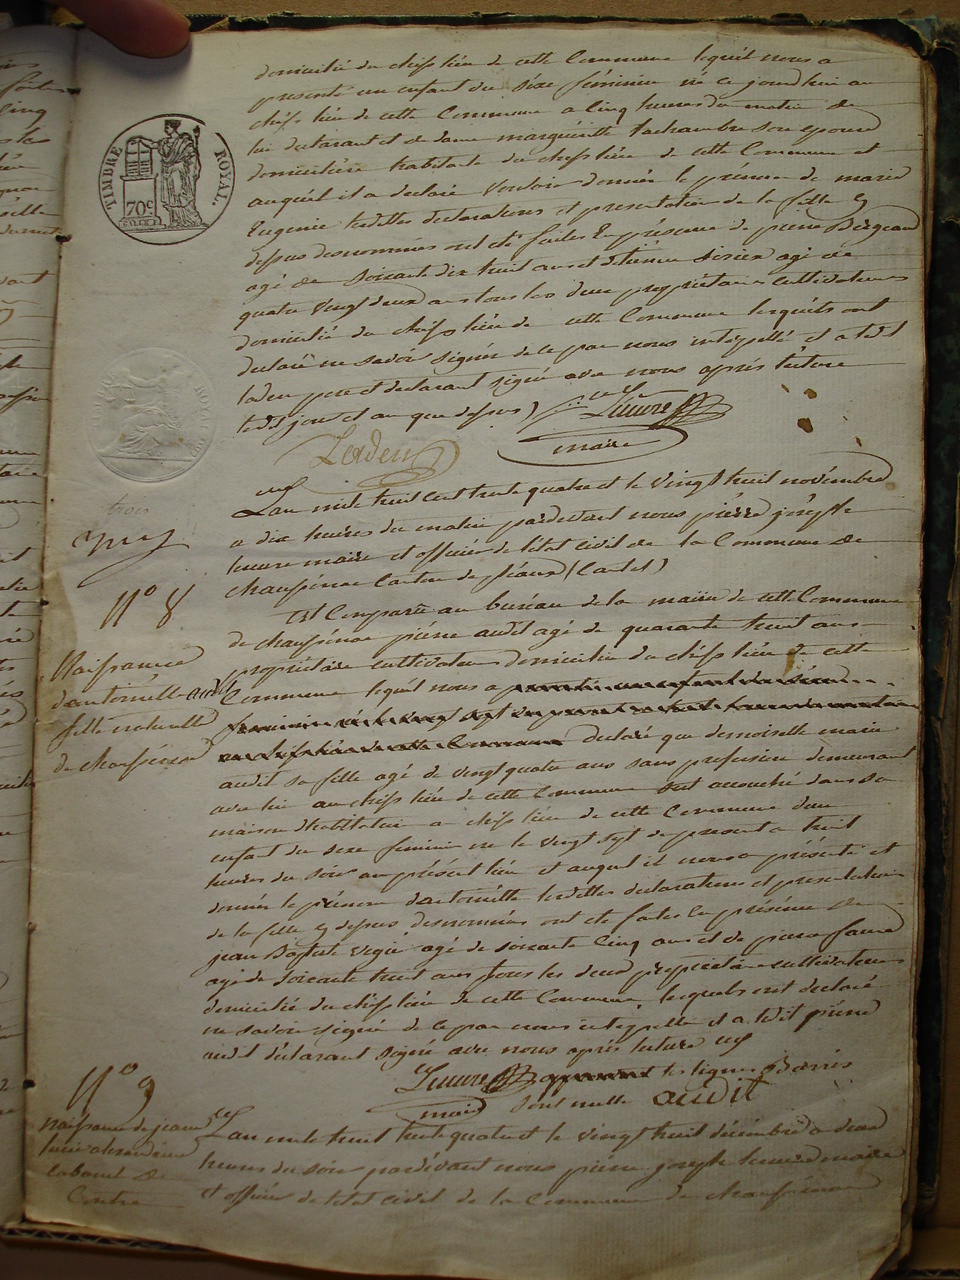 domicilié du chefs lieu de cette Commune lequel nous a
presenté un enfant du sèxe féminin né ce jourdhui au
chefs lieu de cette Commune a Cinq heures du matin de
lui declarant et de dame marguéritte lachambre son epouse
domiciliére habitante du chefs lieu de cette Commune et
auquel il a declaré vouloir donnér le prenom de marie
Eugénie lesdittes déclarations et presentation de la fille cy
dessus denommés ont été faites En présence de pierre Bergeaud
agé de soixante dix huit ans et détienne agé de
quatre vingt deux ans tous les deux propriétaires cultivateurs
domicilié du chefs lieu de cette Commune lesquéls ont
declaré ne savoir signér de ce par nous intérpéllé et a ledit
laden pere et declarant signé avec nous aprés lecture
lesdits jour et an que dessus
TIMBRE ROYAL
70c
maire
Laden
Lan mil huit cent trente quatre et le vingt huit novémbre
a dix heures du matin pardevant nous piérre joséph
maire et officiér de létat civil de la Commune de
(Cantal)
trois
N° 8
Est Comparu au buréau de la mairie de cette Commune
de piérre audit agé de quarante huit ans
propriétaire cultivateur domicilié du chefs lieu de cette
Commune lequél nous a
Naissance
dantoinétte audit
fille naturelle
de
declaré que demoiselle marie
audit sa fille agé de vingt quatre ans sans profession demeurant
avec lui au chefs lieu de cette Commune est accouché dans sa
maison dhabitation a chefs lieu de cette Commune dun
enfant du sexe feminin né le vingt sépt du present a huit
heures du soir au présént lieu et auquél il nous a présenté et
donnér le prénom dantoinétte lesdittes declarations et presentation
de la fille cy dessus denommées ont été faites En présénce de
jean Baptiste agé de soixante Cinq ans et de pierre faure
agé de soixante huit ans tous les deux propriétaires cultivateurs
domicilié du chefs lieu de cette Commune lesquels ont declaré
ne savoir signér de ce par nous intérpéllé et a ledit piérre
audit déclarant signé avec nous aprés lecture
les lignes Barrés
maire sont nulle audit
N° 9
naissance de jeanne
Lan mil huit trente quatre et le vingt huit décémbre a deux
heures du soir pardevant nous piérre joséph maire
et officiér de létat civil de la Commune de